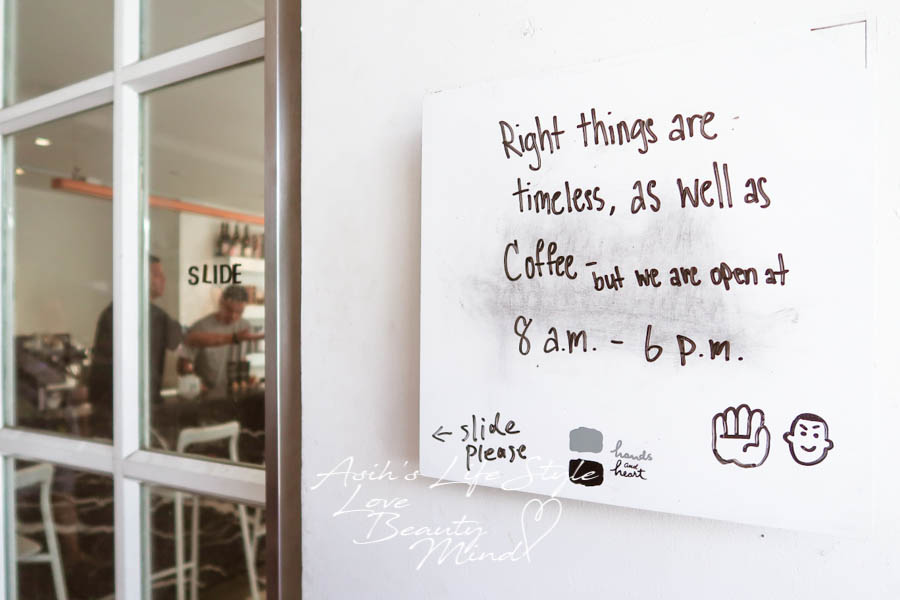 SLIDE
Right things are
timeless, as well as
Coffee - but we are open at
8 a.m. - 6 p.m.
← slide
please
hands
and
heart
Asih's Life Style
Love
Beauty
Mind